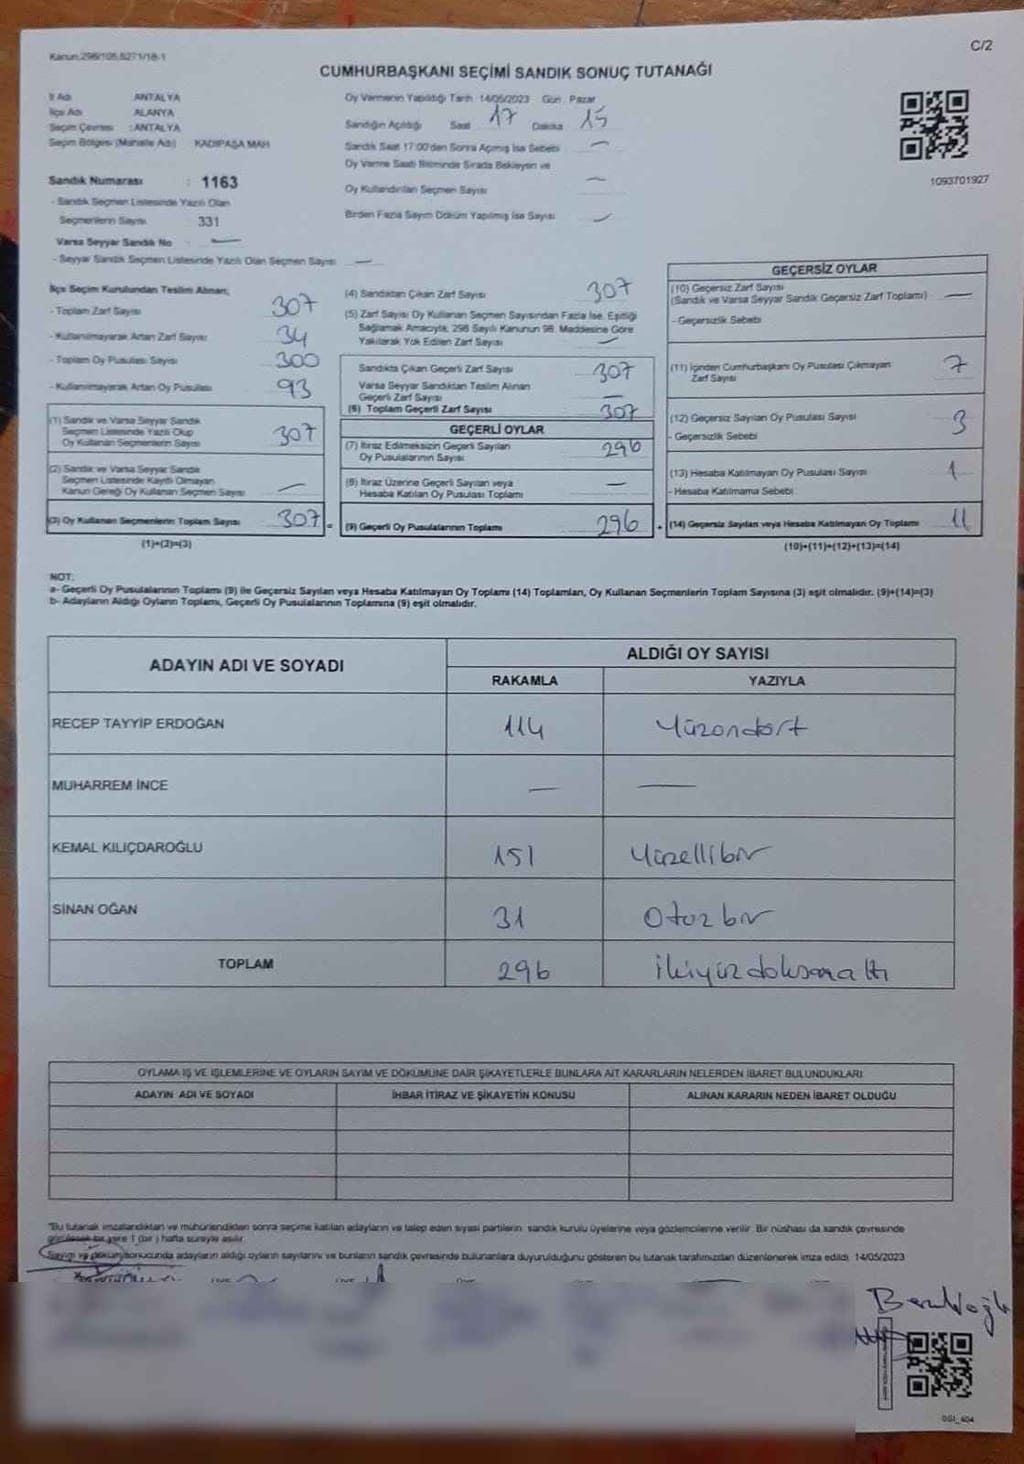 C/2
Kanun:298/105,6271/18-1
CUMHURBAŞKANI SEÇİMİ SANDIK SONUÇ TUTANAĞI
İl Adı ANTALYA
İlçe Adı ALANYA
Seçim Çevresi : ANTALYA
Seçim Bölgesi (Mahalle Adı) KADIPAŞA MAH
Sandık Numarası : 1163
- Sandık Seçmen Listesinde Yazılı Olan
Seçmenlerin Sayısı 331
Varsa Seyyar Sandık No —
- Seyyar Sandık Seçmen Listesinde Yazılı Olan Seçmen Sayısı —
Oy Vermenin Yapıldığı Tarih 14/05/2023 Gün Pazar
Sandığın Açıldığı Saat 17 Dakika 15
Sandık Saat 17:00'den Sonra Açımış İse Sebebi —
Oy Verme Saati Bitiminde Sırada Bekleyen ve
Oy Kullandırılan Seçmen Sayısı —
Birden Fazla Sayım Döküm Yapılmış İse Sayısı —
1093701927
İlçe Seçim Kurulundan Teslim Alınan;
- Toplam Zarf Sayısı 307
- Kullanılmayarak Artan Zarf Sayısı 34
- Toplam Oy Pusulası Sayısı 300
- Kullanılmayarak Artan Oy Pusulası 93
(1) Sandık ve Varsa Seyyar Sandık
Seçmen Listesinde Yazılı Olup
Oy Kullanan Seçmenlerin Sayısı 307
(2) Sandık ve Varsa Seyyar Sandık
Seçmen Listesinde Kayıtlı Olmayan
Kanun Gereği Oy Kullanan Seçmen Sayısı —
(3) Oy Kullanan Seçmenlerin Toplam Sayısı 307 =
(1)+(2)=(3)
(4) Sandıktan Çıkan Zarf Sayısı 307
(5) Zarf Sayısı Oy Kullanan Seçmen Sayısından Fazla İse, Eşitliği
Sağlamak Amacıyla, 298 Sayılı Kanunun 98. Maddesine Göre
Yakılarak Yok Edilen Zarf Sayısı —
Sandıkta Çıkan Geçerli Zarf Sayısı 307
Varsa Seyyar Sandıktan Teslim Alınan
Geçerli Zarf Sayısı —
(6) Toplam Geçerli Zarf Sayısı 307
GEÇERLİ OYLAR
(7) İtiraz Edilmeksizin Geçerli Sayılan
Oy Pusulalarının Sayısı 296
(8) İtiraz Üzerine Geçerli Sayılan veya
Hesaba Katılan Oy Pusulası Toplamı —
(9) Geçerli Oy Pusulalarının Toplamı 296 +
GEÇERSİZ OYLAR
(10) Geçersiz Zarf Sayısı
(Sandık ve Varsa Seyyar Sandık Geçersiz Zarf Toplamı) —
- Geçersizlik Sebebi
(11) İçinden Cumhurbaşkanı Oy Pusulası Çıkmayan 7
Zarf Sayısı
(12) Geçersiz Sayılan Oy Pusulası Sayısı 3
- Geçersizlik Sebebi
(13) Hesaba Katılmayan Oy Pusulası Sayısı 1
- Hesaba Katılmama Sebebi
(14) Geçersiz Sayılan veya Hesaba Katılmayan Oy Toplamı 11
(10)+(11)+(12)+(13)=(14)
NOT:
a- Geçerli Oy Pusulalarının Toplamı (9) ile Geçersiz Sayılan veya Hesaba Katılmayan Oy Toplamı (14) Toplamları, Oy Kullanan Seçmenlerin Toplam Sayısına (3) eşit olmalıdır. (9)+(14)=(3)
b- Adayların Aldığı Oyların Toplamı, Geçerli Oy Pusulalarının Toplamına (9) eşit olmalıdır.
ADAYIN ADI VE SOYADI ALDIĞI OY SAYISI
RAKAMLA YAZIYLA
RECEP TAYYİP ERDOĞAN 114 Yüzondört
MUHARREM İNCE — —
KEMAL KILIÇDAROĞLU 151 Yüzellibir
SİNAN OĞAN 31 Otuzbir
TOPLAM 296 ikiyüzdoksanaltı
OYLAMA İŞ VE İŞLEMLERİNE VE OYLARIN SAYIM VE DÖKÜMÜNE DAİR ŞİKAYETLERLE BUNLARA AİT KARARLARIN NELERDEN İBARET BULUNDUKLARI
ADAYIN ADI VE SOYADI İHBAR İTİRAZ VE ŞİKAYETİN KONUSU ALINAN KARARIN NEDEN İBARET OLDUĞU
*Bu tutanak imzalandıktan ve mühürlendikten sonra seçime katılan adayların ve talep eden siyasi partilerin sandık kurulu üyelerine veya gözlemcilerine verilir. Bir nüshası da sandık çevresinde
görülecek bir yere 1 (bir ) hafta süreyle asılır.
Sayım ve döküm sonucunda adayların aldığı oyların sayılarını ve bunların sandık çevresinde bulunanlara duyurulduğunu gösteren bu tutanak tarafımızdan düzenlenerek imza edildi. 14/05/2023